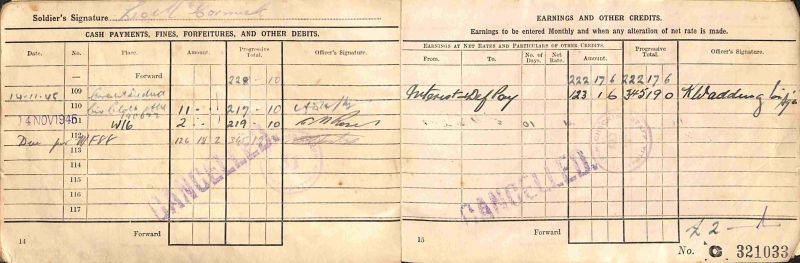 Soldier's Signature
CASH PAYMENTS, FINES, FORFEITURES, AND OTHER DEBITS.
Date. No. Place. Amount. Progressive Total. Officer's Signature.
— Forward 228 - 10
14-11-45 109
110 11 - - 217 - 10
14 NOV 1945 111 W16 2 - 219 - 10
Due per W F88 112 126 18 2 345
113
114
115
116
117
CANCELLED.
Forward
14
EARNINGS AND OTHER CREDITS.
Earnings to be entered Monthly and when any alteration of net rate is made.
EARNINGS AT NET RATES AND PARTICULARS OF OTHER CREDITS.
From. To. No. of Days. Net Rate. Amount. Progressive Total. Officer's Signature.
Forward 222 17 6 222 17 6
Interest & Def Pay 123 1 6 345 19 0 K Wadding
CANCELLED.
15 Forward
£2 - 1
No. G 321033